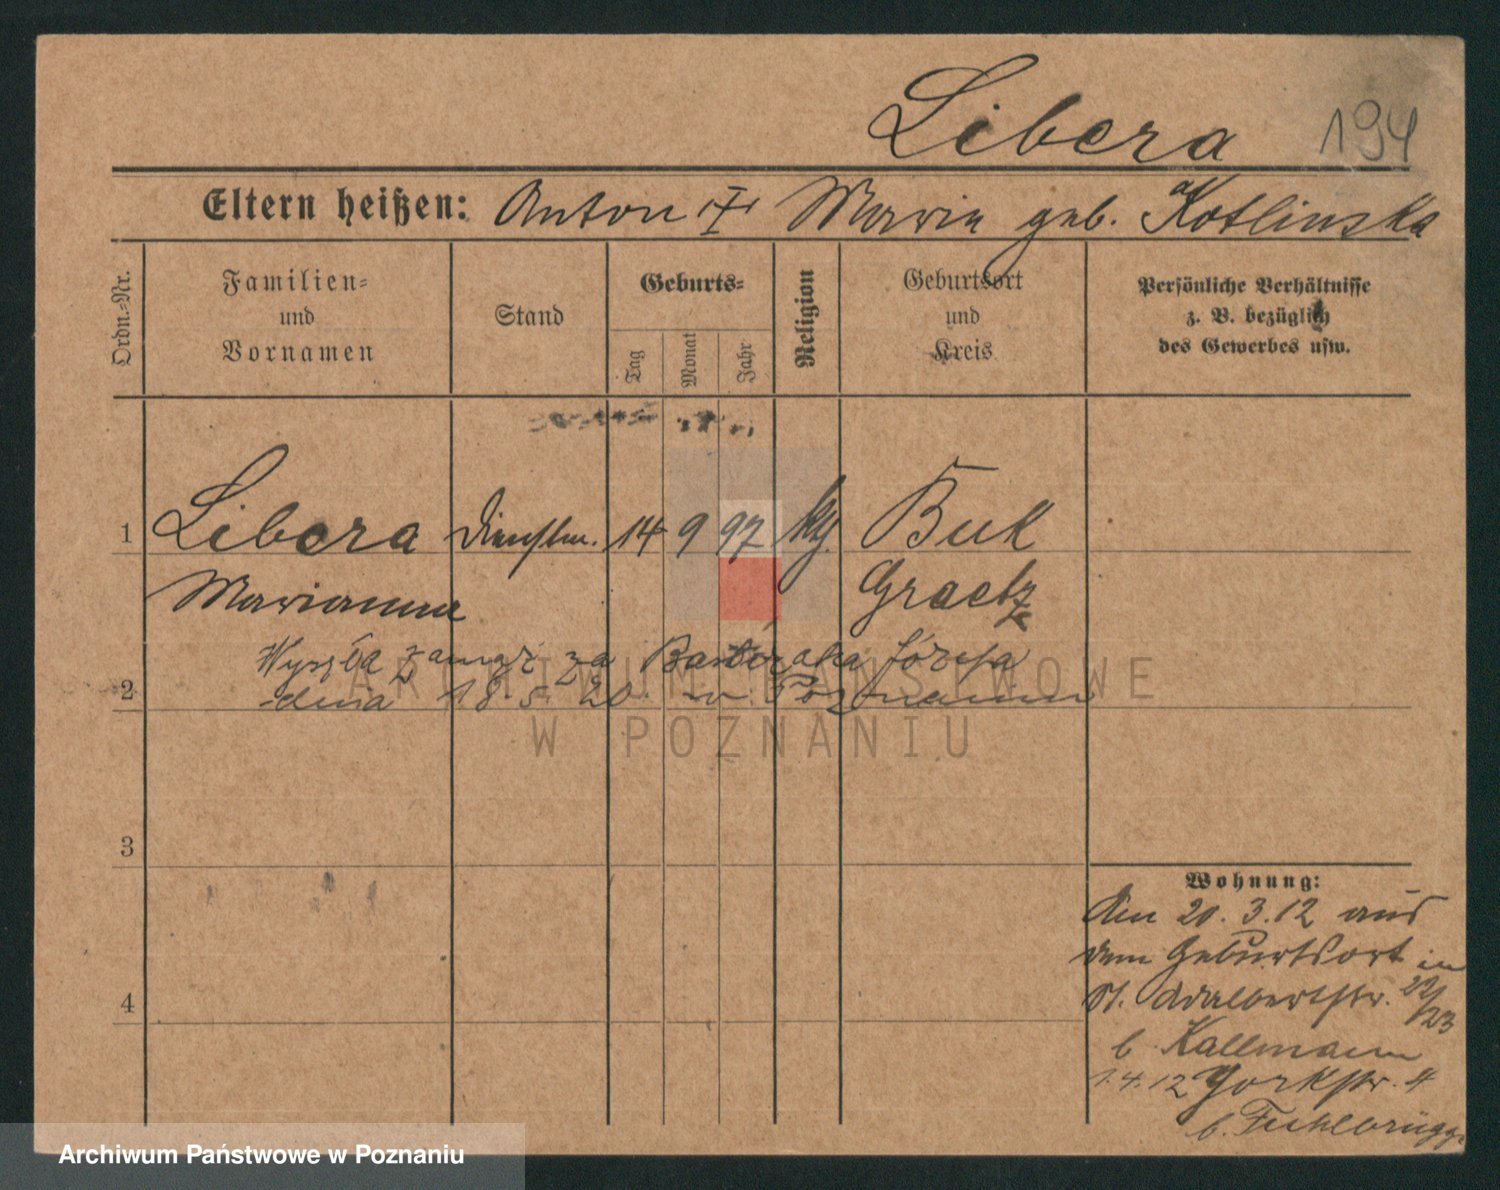 Libera 194
Eltern heißen: Anton Marie geb. Kotlinska
Ordn.-Nr.
Familien- und Vornamen
Stand
Geburts-
Tag
Monat
Jahr
Religion
Geburtsort und Kreis
Persönliche Verhältnisse
z. B. bezüglich
des Gewerbes usw.
1 Libera Dienstm. 14 9 97 Buk
Marianna Graetz
Wyszła zamąż za Józefa
2 dnia 18. 5. 20. w Poznaniu
ARCHIWUM PAŃSTWOWE
W POZNANIU
3
Wohnung:
den 20. 3. 12 aus
dem Geburtsort in
St. Adalbertstr. 22/23
4
b. Kallmann
1.4.12 Yorkstr. 4
b. Fuhlbrügge
Archiwum Państwowe w Poznaniu